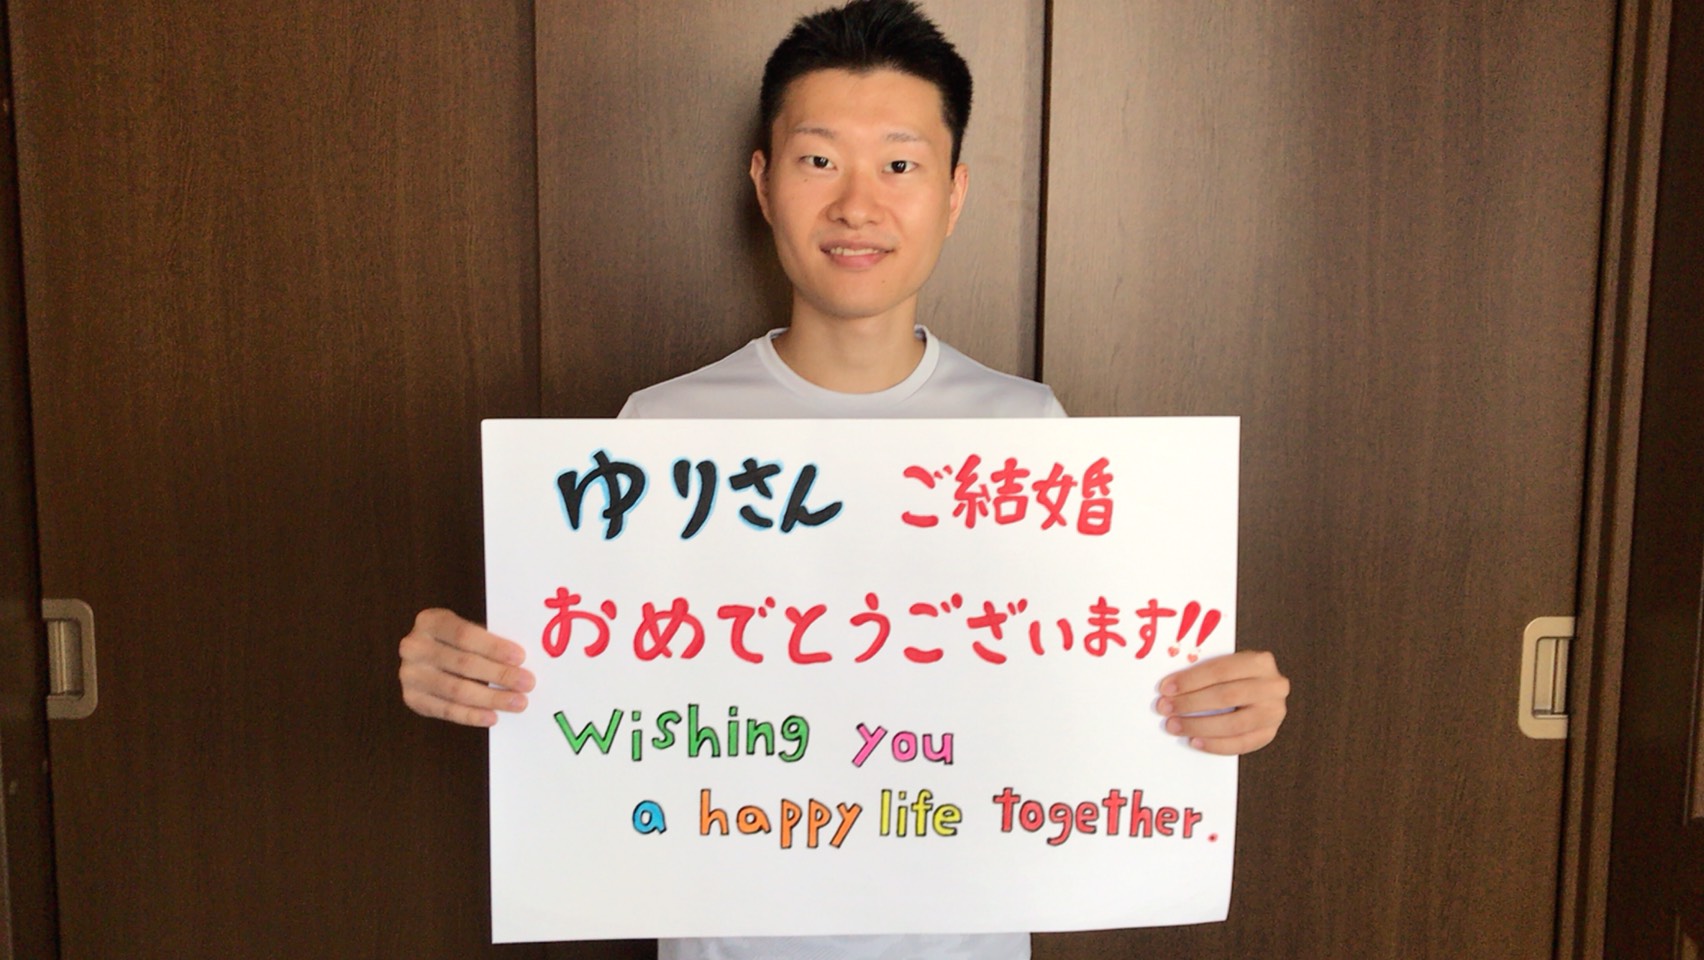 ゆりさん ご結婚
おめでとうございます!!
Wishing you
a happy life together.